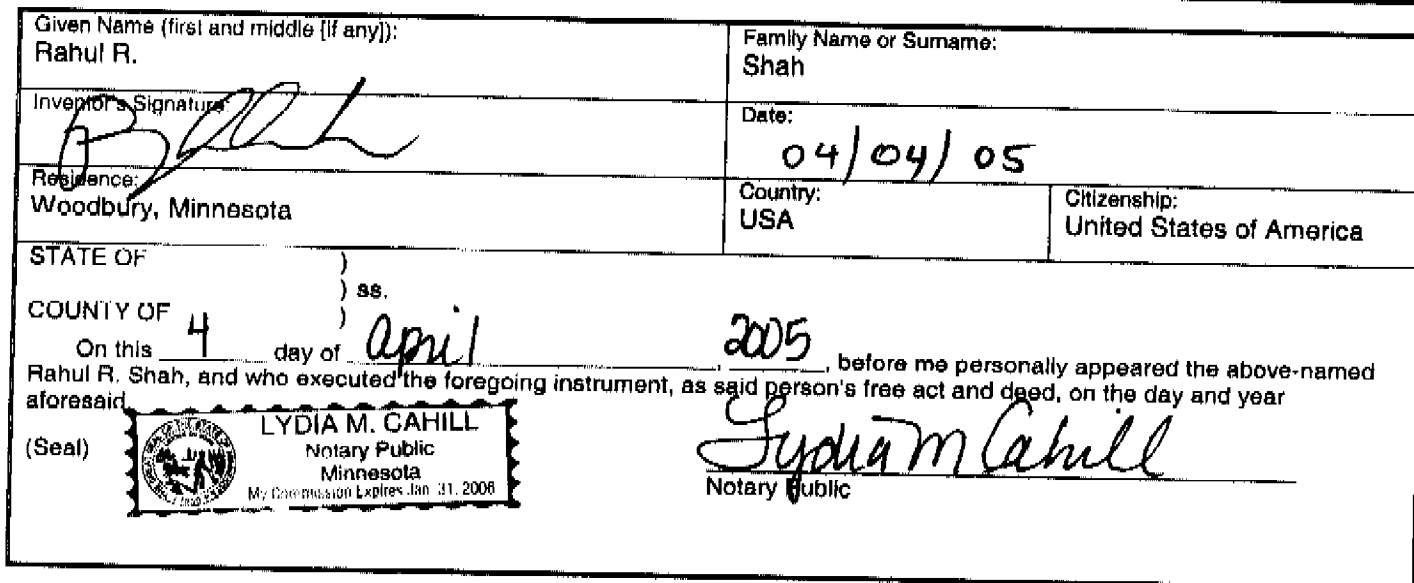 Given Name (first and middle [if any]):
Rahul R.
Family Name or Surname:
Shah
Inventor's Signature:
Date:
04/04/05
Residence:
Woodbury, Minnesota
Country:
USA
Citizenship:
United States of America
STATE OF )
) ss.
COUNTY OF )
On this 4 day of April, 2005, before me personally appeared the above-named
Rahul R. Shah, and who executed the foregoing instrument, as said person's free act and deed, on the day and year
aforesaid.
(Seal)
LYDIA M. CAHILL
Notary Public
Minnesota
My Commission Expires Jan. 31, 2006
Lydia M Cahill
Notary Public